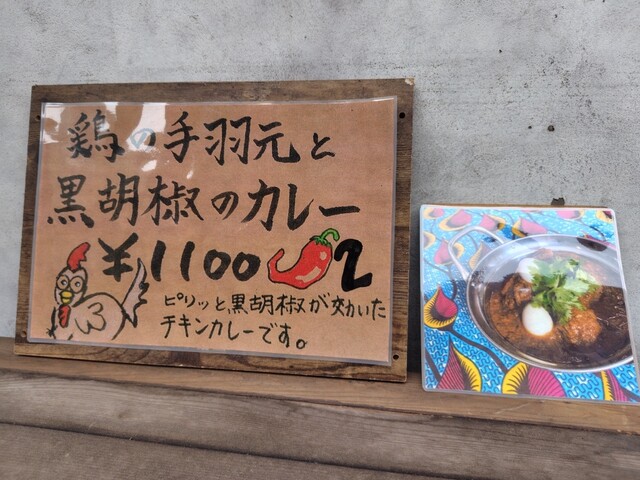 鶏の手羽元と
黒胡椒のカレー
¥1100 2
ピリッと黒胡椒が効いた
チキンカレーです。